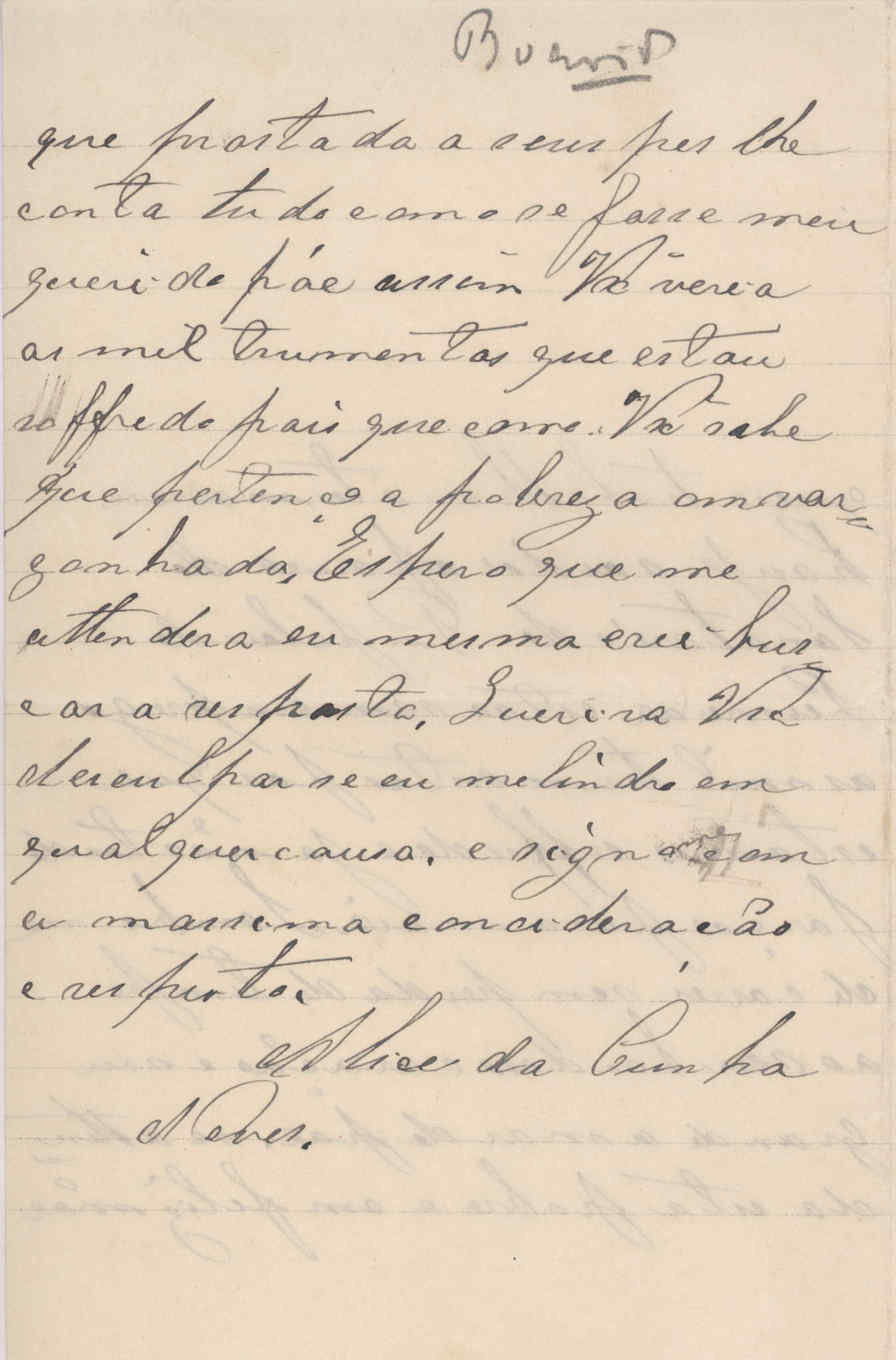 que prostada a seus pes lhe
conta tudo como se fosse meu
querido páe assim Vxª verea
os mil trumentos que estau
soffredo pois que como Vxª sabe
que pertenceo a pobreza omvar=
gonhada, Espero que me
attendera eu mesma erei bus=
car a resposta, Queirira Vxª
desculpar se eu melindro em
qualquer causa. e signo com
a massima concideração
e respeito.
Alice da Cunha
Neves.